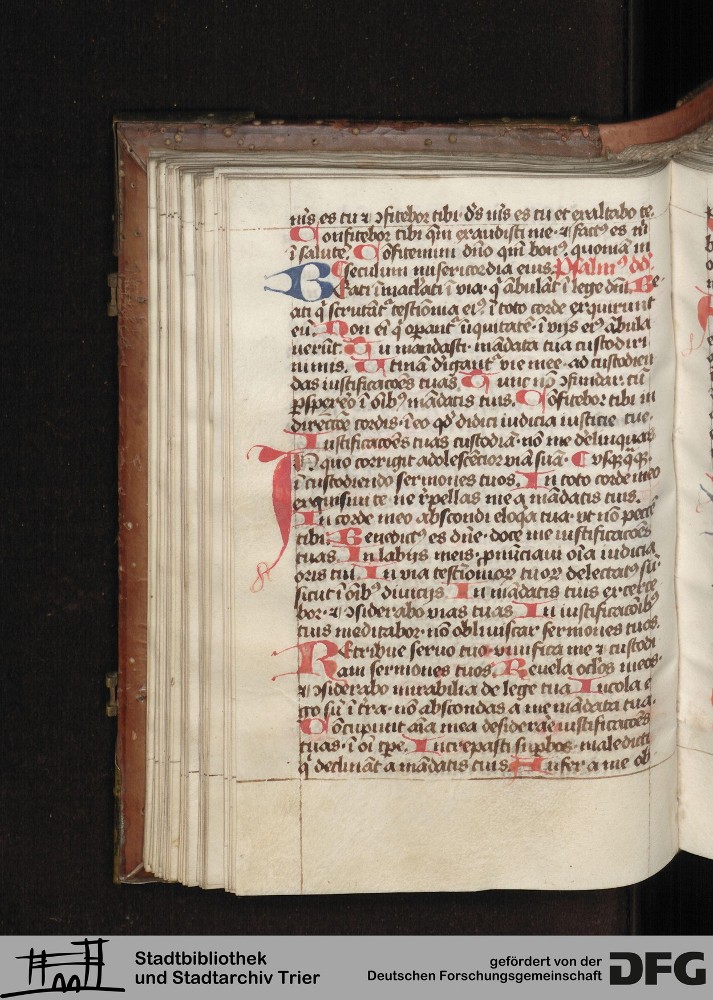 n̄r̄s es tu ⁊ ꝯfitebor tibi d̄s m̄s es tu et exaltabo te.
Confitebor tibi qm̄ exaudisti me · ⁊ factꝰ es m̄
ī salutē. Cōfitemini dn̄o qm̄ bonꝰ. quoniā in
seculum misericordia eius. Psalmꝰ dd̄.
Beati īmacl̓ati ī via · q̄ ābulāt ī lege dn̄i. Be
ati q̄ scrutāt᷑ testīonia eiꝰ · ī toto corde exquirunt
eū. Non ei̓ q̄ operant᷑ īiquitatē · ī vijs eiꝰ ābula
uerūt. Tu mandasti · mādata tua custodiri
nimis. Utinā dīgant᷑ vie mee · ad custodien
das iustificacōes tuas. Tunc nō ꝯfundar · cū
ꝑspexero ī oīb̓ꝰ mādatis tuis. Cōfitebor tibi in
direccōe cordis · ī eo qd̓ didici iudicia iusticie tue.
Iustificacōes tuas custodiā · nō me delinquas
IN quo corrigit adolescēcior viā suā · vsqꝫq̄ꝫ.
ī custodiendo sermones tuos. In toto corde meo
exquisiui te · ne r̓pellas me a mādatis tuis.
In corde meo abscondi eloq̓a tua · vt nō pecce
tibi. Benedictꝰ es dn̄e · doce me iustificacōes
tuas. In labijs meis · pn̄ūciaui oīa iudicia
oris tui. In via testīonioꝝ tuoꝝ delectatꝰ sū ·
sicut ī oīb̓ꝰ diuicijs. In mādatis tuis exerce
bor · ⁊ ꝯsiderabo vias tuas. In iustificacōib̓ꝰ
tuis meditabor · nō obliuiscar sermones tuos.
REtribue seruo tuo viuifica me ⁊ custodi
am sermones tuos. Reuela oc̓los meos ·
⁊ ꝯsiderabo mirabilia de lege tua. Incola e
go sū ī tr̄a · nō abscondas a me mādata tua.
Cōcupiuit aīa mea desiderāe iustificacōes
tuas · ī oī tp̄e. Increpasti suꝑbos · maledicti
q̄ declināt a mādatis tuis. Aufer a me ob
Stadtbibliothek
und Stadtarchiv Trier
gefördert von der
Deutschen Forschungsgemeinschaft
DFG